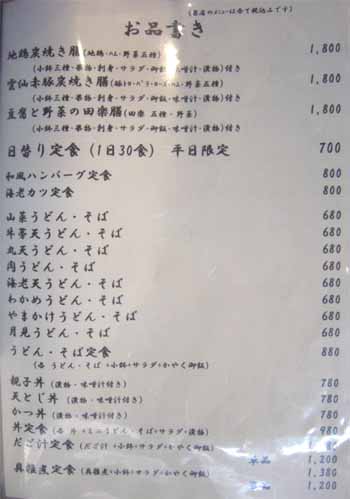 お品書き
(当店のメニューは全て税込みです)
地鶏炭焼き膳(地鶏・ハム・野菜五種) 1,800
(小鉢三種・果物・刺身・サラダ・御飯・味噌汁・漬物)付き
雲仙赤豚炭焼き膳 1,800
(小鉢三種・果物・刺身・サラダ・御飯・味噌汁・漬物)付き
豆腐と野菜の田楽膳(田楽 五種・野菜) 1,800
(小鉢三種・果物・刺身・サラダ・御飯・味噌汁・漬物)付き
日替り定食(1日30食) 平日限定 700
和風ハンバーグ定食 800
海老カツ定食 800
山菜うどん・そば 680
牛蒡天うどん・そば 680
丸天うどん・そば 680
肉うどん・そば 680
海老天うどん・そば 680
わかめうどん・そば 680
やまかけうどん・そば 680
月見うどん・そば 680
うどん・そば定食 880
(各 うどん・そば+小鉢+サラダ+かやく御飯)
親子丼(漬物・味噌汁付き) 780
天とじ丼(漬物・味噌汁付き) 780
かつ丼(漬物・味噌汁付き) 780
丼定食(各 丼+ミニうどん・そば+サラダ+漬物) 980
だご汁定食(だご汁+小鉢+サラダ+かやく御飯)
単品 1,200
具雑煮定食(具雑煮+小鉢+サラダ+かやく御飯) 1,380
単品 1,200